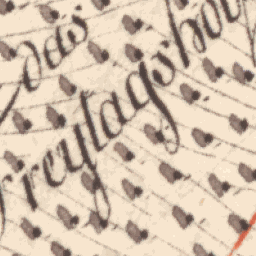 das
Freytagsho